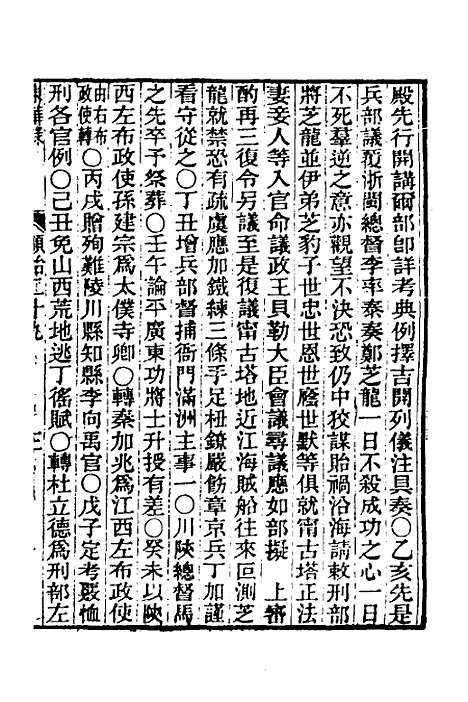 殿先行開講爾部卽詳考典例擇吉開列儀注具奏○乙亥先是
兵部議覆浙閩總督李率泰奏鄭芝龍一日不殺成功之心一日
不死羣逆之意亦觀望不決恐致仍中狡謀貽禍沿海請敕刑部
將芝龍並伊弟芝豹子世忠世恩世廕世默等俱就甯古塔正法
妻妾人等入官命議政王貝勒大臣會議尋議應如部擬 上審
酌再三復令另議至是復議甯古塔地近江海賊船往來叵測芝
龍就禁恐有疏虞應加鐵練三條手足杻鐐嚴飭章京兵丁加謹
看守從之○丁丑增兵部督捕衙門滿洲主事一○川陝總督馬
之先卒予祭葬○壬午論平廣東功將士升授有差○癸未以陝
西左布政使孫建宗爲太僕寺卿○轉秦加兆爲江西左布政使
由右布政使轉○丙戌贈殉難陵川縣知縣李向禹官○戊子定考覈恤
刑各官例○己丑免山西荒地逃丁徭賦○轉杜立德爲刑部左
順治二十九